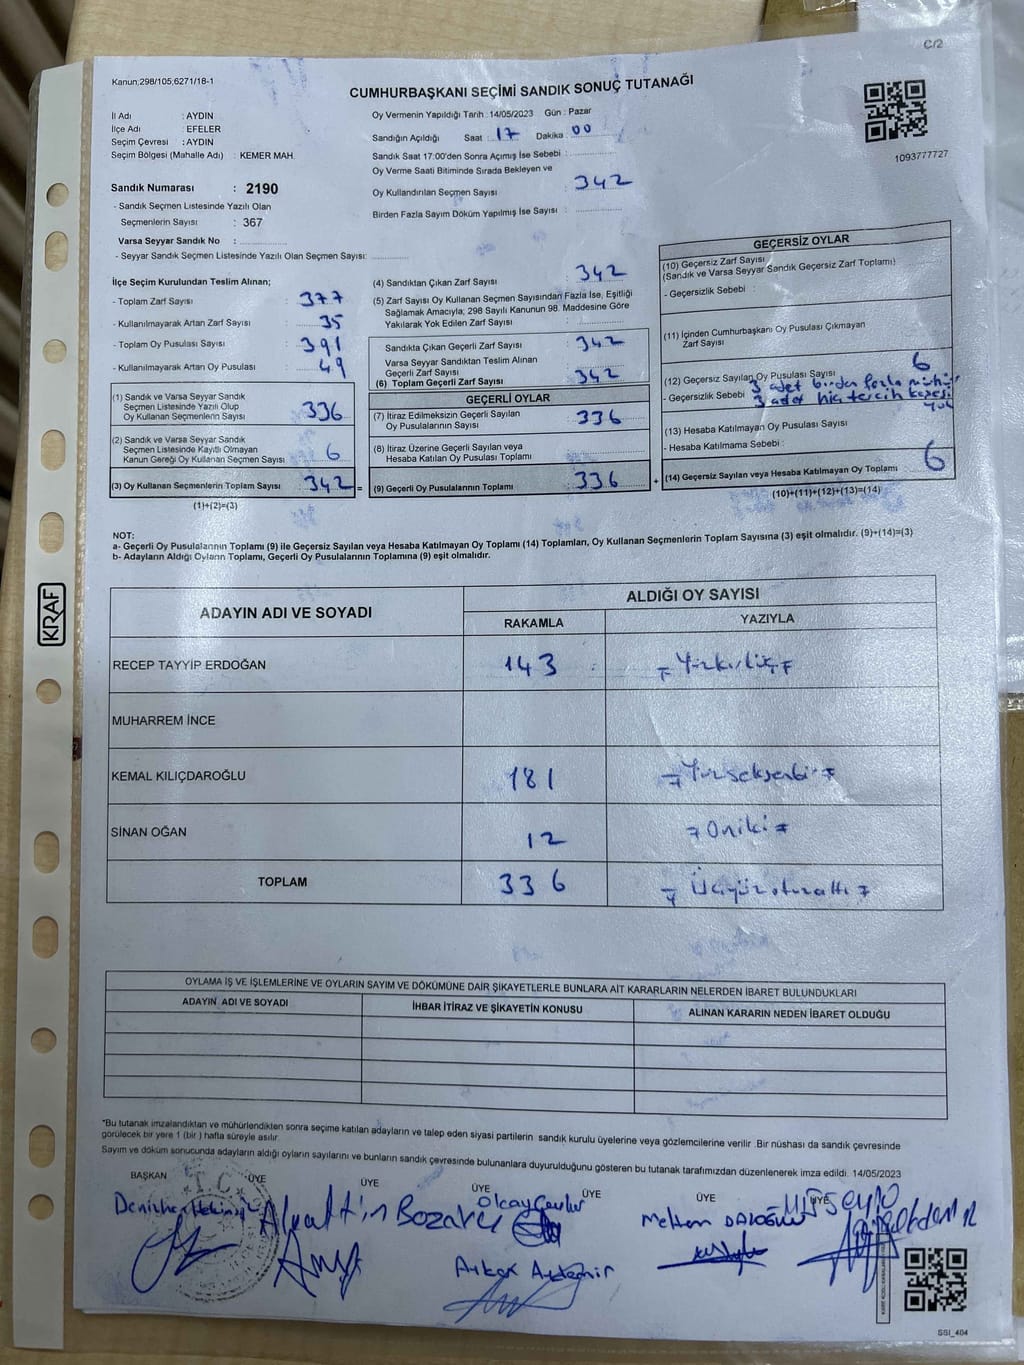 C/2
Kanun;298/105;6271/18-1
CUMHURBAŞKANI SEÇİMİ SANDIK SONUÇ TUTANAĞI
İl Adı : AYDIN
İlçe Adı : EFELER
Seçim Çevresi : AYDIN
Seçim Bölgesi (Mahalle Adı) : KEMER MAH.
Sandık Numarası : 2190
- Sandık Seçmen Listesinde Yazılı Olan
Seçmenlerin Sayısı : 367
Varsa Seyyar Sandık No :
- Seyyar Sandık Seçmen Listesinde Yazılı Olan Seçmen Sayısı:
Oy Vermenin Yapıldığı Tarih : 14/05/2023 Gün : Pazar
Sandığın Açıldığı Saat : 17 Dakika : 00
Sandık Saat 17:00'den Sonra Açımış İse Sebebi :
Oy Verme Saati Bitiminde Sırada Bekleyen ve
Oy Kullandırılan Seçmen Sayısı 342
Birden Fazla Sayım Döküm Yapılmış İse Sayısı :
1093777727
İlçe Seçim Kurulundan Teslim Alınan;
- Toplam Zarf Sayısı : 377
- Kullanılmayarak Artan Zarf Sayısı : 35
- Toplam Oy Pusulası Sayısı : 391
- Kullanılmayarak Artan Oy Pusulası : 49
(1) Sandık ve Varsa Seyyar Sandık
Seçmen Listesinde Yazılı Olup
Oy Kullanan Seçmenlerin Sayısı 336
(2) Sandık ve Varsa Seyyar Sandık
Seçmen Listesinde Kayıtlı Olmayan
Kanun Gereği Oy Kullanan Seçmen Sayısı 6
(3) Oy Kullanan Seçmenlerin Toplam Sayısı 342 =
(1)+(2)=(3)
(4) Sandıktan Çıkan Zarf Sayısı : 342
(5) Zarf Sayısı Oy Kullanan Seçmen Sayısından Fazla İse, Eşitliği
Sağlamak Amacıyla, 298 Sayılı Kanunun 98. Maddesine Göre
Yakılarak Yok Edilen Zarf Sayısı :
Sandıkta Çıkan Geçerli Zarf Sayısı : 342
Varsa Seyyar Sandıktan Teslim Alınan
Geçerli Zarf Sayısı
(6) Toplam Geçerli Zarf Sayısı 342
GEÇERLİ OYLAR
(7) İtiraz Edilmeksizin Geçerli Sayılan
Oy Pusulasının Sayısı 336
(8) İtiraz Üzerine Geçerli Sayılan veya
Hesaba Katılan Oy Pusulası Toplamı
(9) Geçerli Oy Pusulalarının Toplamı 336 +
GEÇERSİZ OYLAR
(10) Geçersiz Zarf Sayısı
(Sandık ve Varsa Seyyar Sandık Geçersiz Zarf Toplamı)
- Geçersizlik Sebebi :
(11) İçinden Cumhurbaşkanı Oy Pusulası Çıkmayan
Zarf Sayısı
(12) Geçersiz Sayılan Oy Pusulası Sayısı 6
- Geçersizlik Sebebi 3 adet birden fazla mühür
3 adet hiç tercih kaşesi
yok
(13) Hesaba Katılmayan Oy Pusulası Sayısı
- Hesaba Katılmama Sebebi :
(14) Geçersiz Sayılan veya Hesaba Katılmayan Oy Toplamı 6
(10)+(11)+(12)+(13)=(14)
NOT:
a- Geçerli Oy Pusulalarının Toplamı (9) ile Geçersiz Sayılan veya Hesaba Katılmayan Oy Toplamı (14) Toplamları, Oy Kullanan Seçmenlerin Toplam Sayısına (3) eşit olmalıdır. (9)+(14)=(3)
b- Adayların Aldığı Oyların Toplamı, Geçerli Oy Pusulalarının Toplamına (9) eşit olmalıdır.
ADAYIN ADI VE SOYADI ALDIĞI OY SAYISI
RAKAMLA YAZIYLA
RECEP TAYYİP ERDOĞAN 143 Yüzkırküç
MUHARREM İNCE
KEMAL KILIÇDAROĞLU 181 Yüzseksenbir
SİNAN OĞAN 12 Oniki
TOPLAM 336 Üçyüzotuzaltı
KRAF
OYLAMA İŞ VE İŞLEMLERİNE VE OYLARIN SAYIM VE DÖKÜMÜNE DAİR ŞİKAYETLERLE BUNLARA AİT KARARLARIN NELERDEN İBARET BULUNDUKLARI
ADAYIN ADI VE SOYADI İHBAR İTİRAZ VE ŞİKAYETİN KONUSU ALINAN KARARIN NEDEN İBARET OLDUĞU
*Bu tutanak imzalandıktan ve mühürlendikten sonra seçime katılan adayların ve talep eden siyasi partilerin sandık kurulu üyelerine veya gözlemcilerine verilir .Bir nüshası da sandık çevresinde
görülecek bir yere 1 (bir ) hafta süreyle asılır.
Sayım ve döküm sonucunda adayların aldığı oyların sayılarını ve bunların sandık çevresinde bulunanlara duyurulduğunu gösteren bu tutanak tarafımızdan düzenlenerek imza edildi. 14/05/2023
BAŞKAN ÜYE ÜYE ÜYE ÜYE ÜYE ÜYE
T.C.
Meltem DALOĞLU
Aykar Aydemir
SSI_404